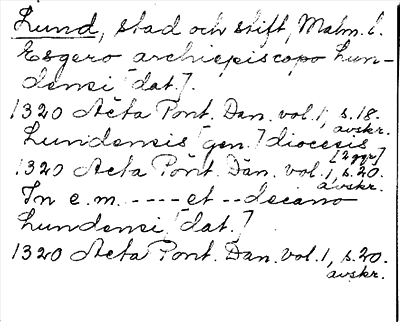 Lund, stad och stift, Malm. l.
Esgero archiepiscopo Lun-
densi [dat.].
1320 Acta Pont. Dan. vol. 1, s. 18.
avskr.
Lundensis [gen.] diocesis
[2 ggr]
1320 Acta Pont. Dan. vol. 1, s. 20.
avskr.
In e.m. ---- et -- decano
Lundensi [dat.]
1320 Acta Pont. Dan. vol. 1, s. 20.
avskr.